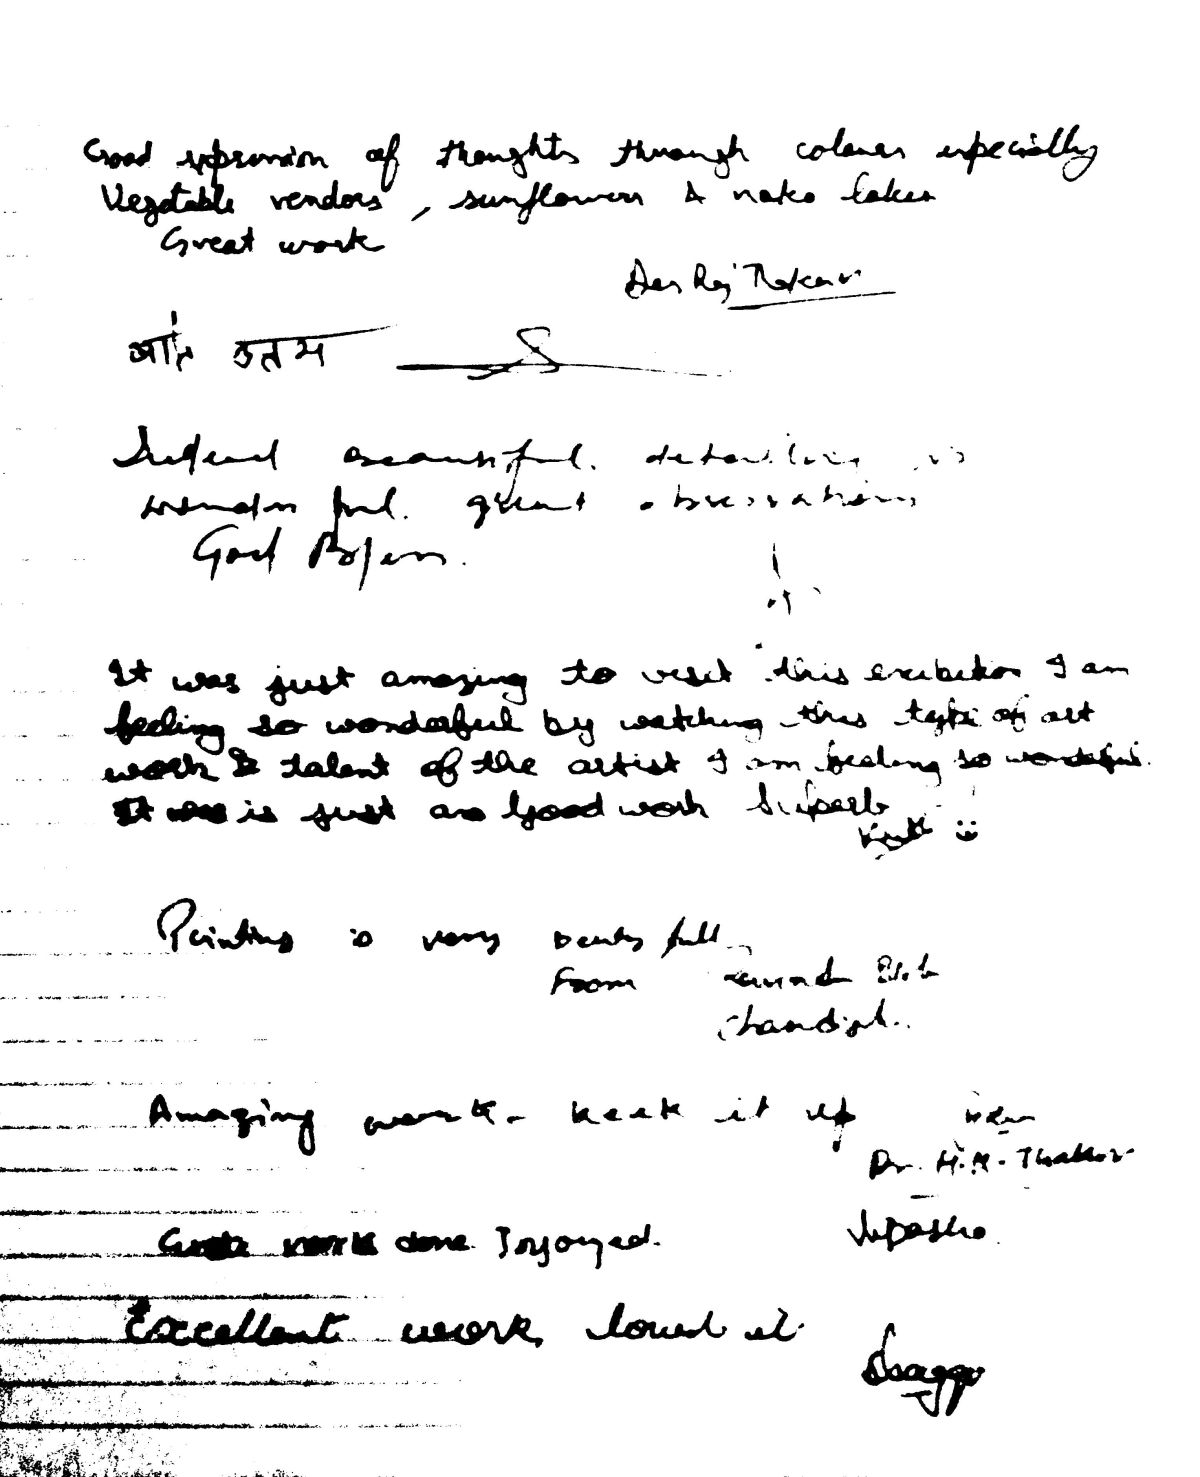 Good expression of thoughts through colours especially
Vegetable vendors, sunflowers & nako lakes
Great work
Des Raj Thakur
अति उतम
Indeed beautiful. detailing is
wonderful. great observations
God Bless.
It was just amazing to visit this exibition I am
feeling so wonderful by watching this type of art
work & talent of the artist I am feeling so wonderful.
It is just an good work Superb
Painting is very beautyfull
From
Amazing work - keek it up
Dr. H.K. Thakur
work done Injoyed.
Vipasha
Excellent work, loved it